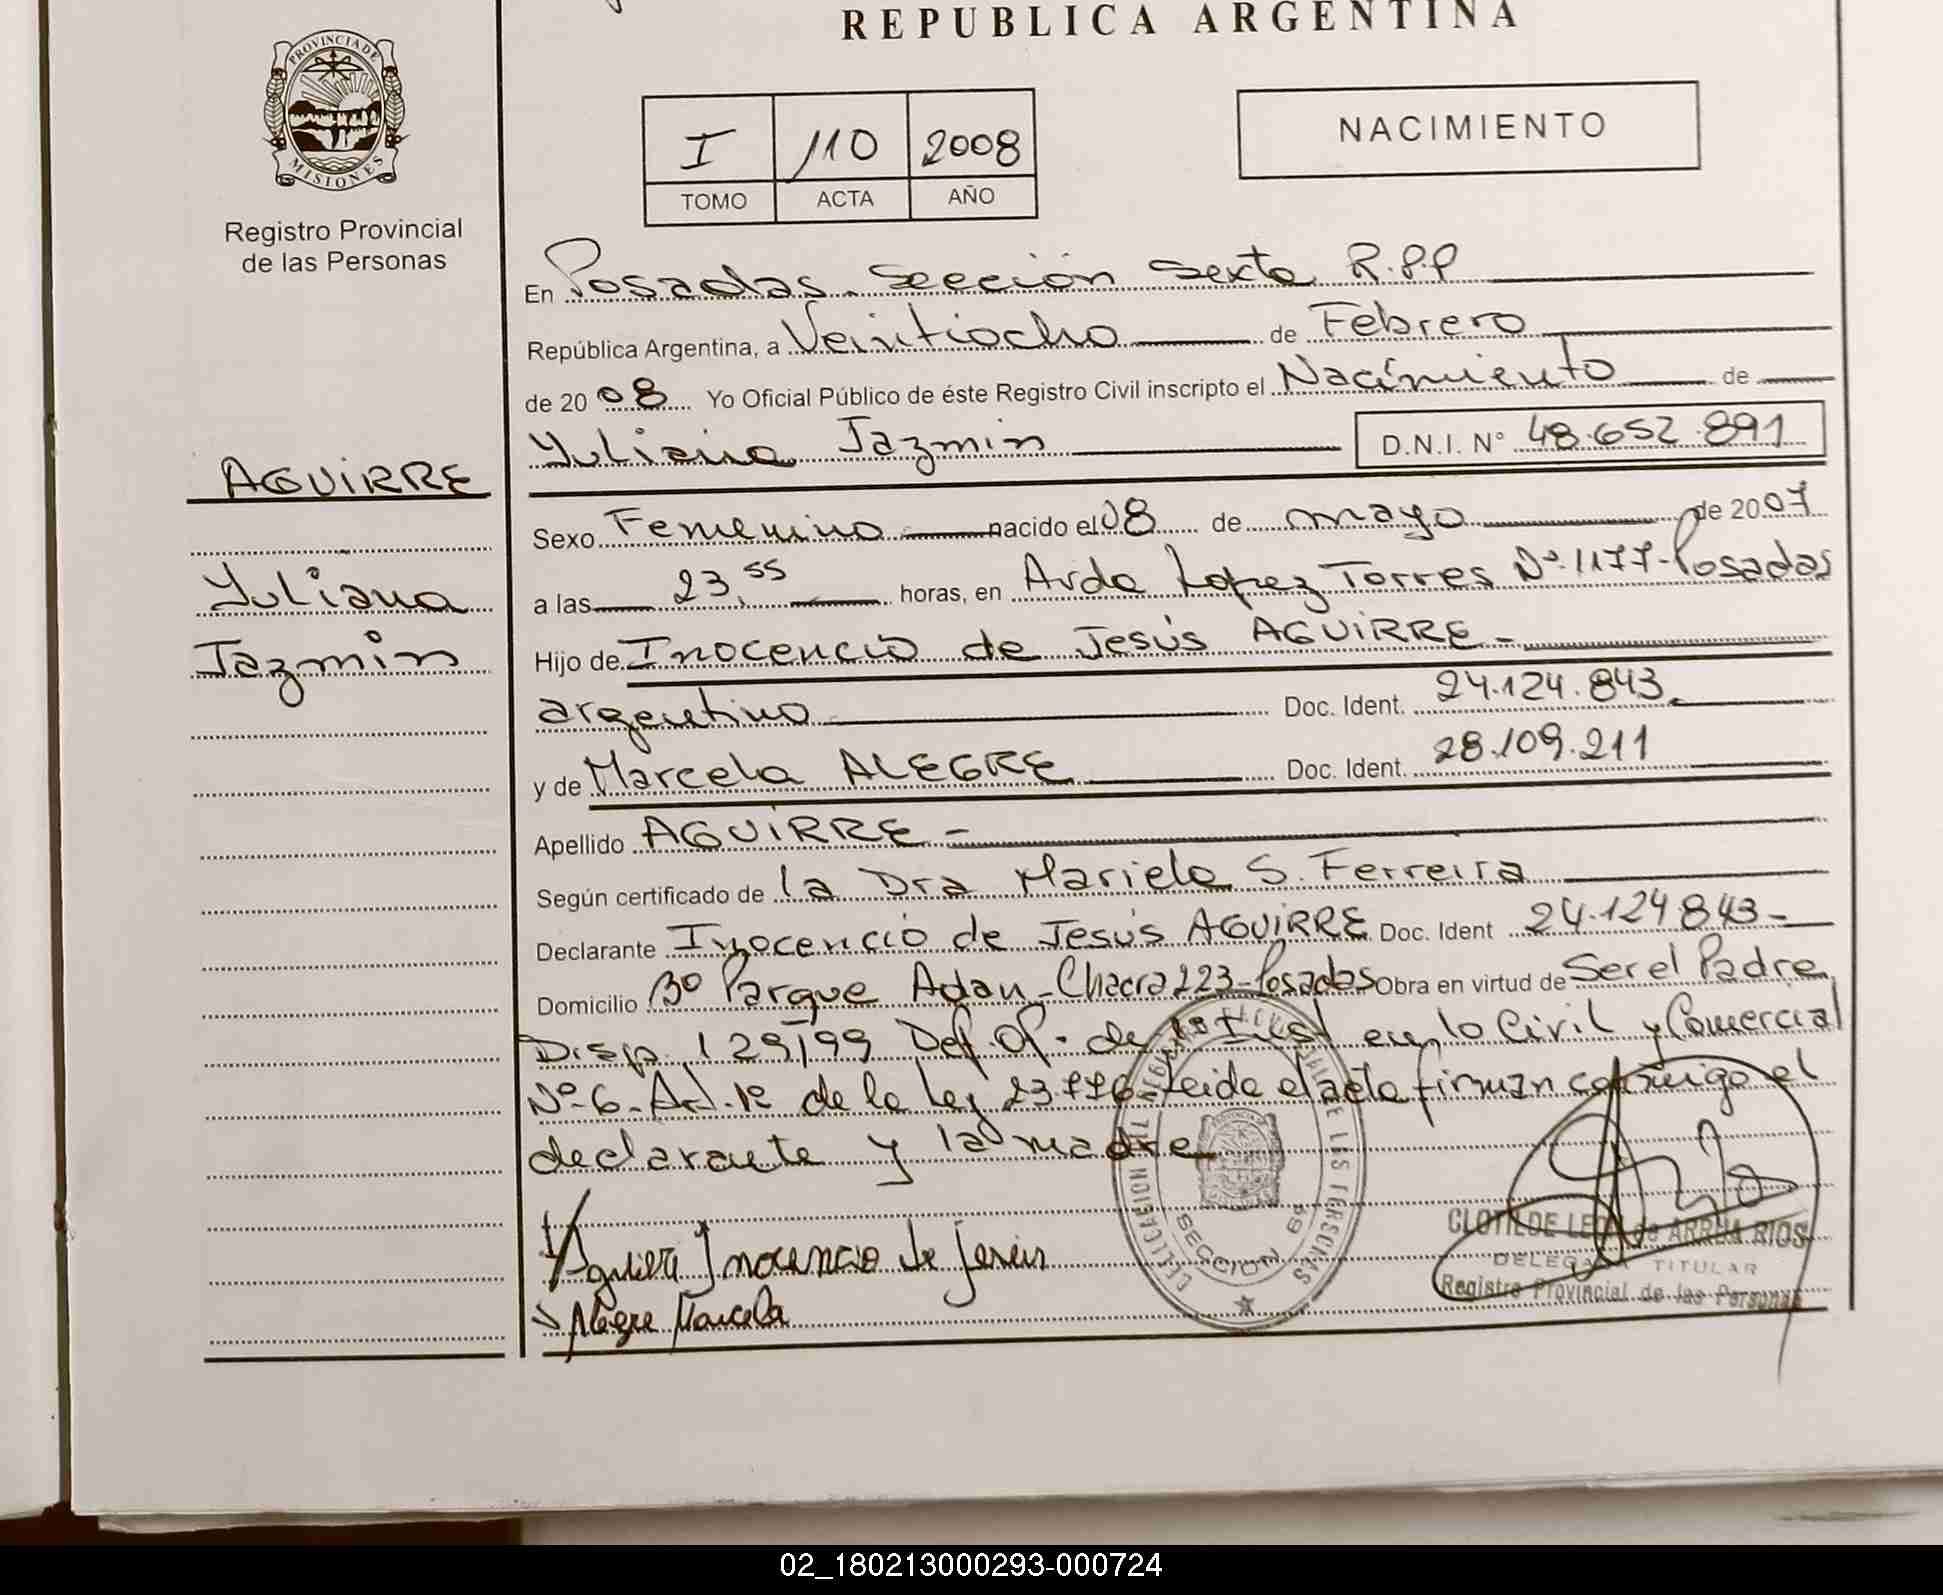 REPUBLICA ARGENTINA
PROVINCIA DE
MISIONES
Registro Provincial
de las Personas
I 110 2008
TOMO ACTA AÑO
NACIMIENTO
En Posadas. Sección Sexta R.P.P
República Argentina, a Veintiocho de Febrero
de 2008 Yo Oficial Público de éste Registro Civil inscripto el Nacimiento de
Yuliana Jazmin D.N.I. N° 48.652.891
AGUIRRE
Yuliana
Jazmin
Sexo Femenino nacido el 08 de mayo de 2007
a las 23,55 horas, en Avda Lopez Torres Nº 1177-Posadas
Hijo de Inocencio de Jesús AGUIRRE-
argentino Doc. Ident. 24.124.843
y de Marcela ALEGRE Doc. Ident. 28.109.211
Apellido AGUIRRE-
Según certificado de la Dra Mariela S. Ferreira
Declarante Inocencio de Jesús AGUIRRE Doc. Ident 24.124843-
Domicilio Bº Parque Adan-Chacra 223-Posadas Obra en virtud de Ser el Padre
Disp. 129/99 Def. Of. de 1º Inst en lo Civil y Comercial
Nº-6-Art.1º de la Ley 23776-Leida el acta firman conmigo el
declarante y la madre
Aguirre Inocencio de Jesús
Alegre Marcela
SECCION 6º
CLOTILDE LEON de ARRUA RIOS
DELEGADA TITULAR
Registro Provincial de las Personas
02_180213000293-000724